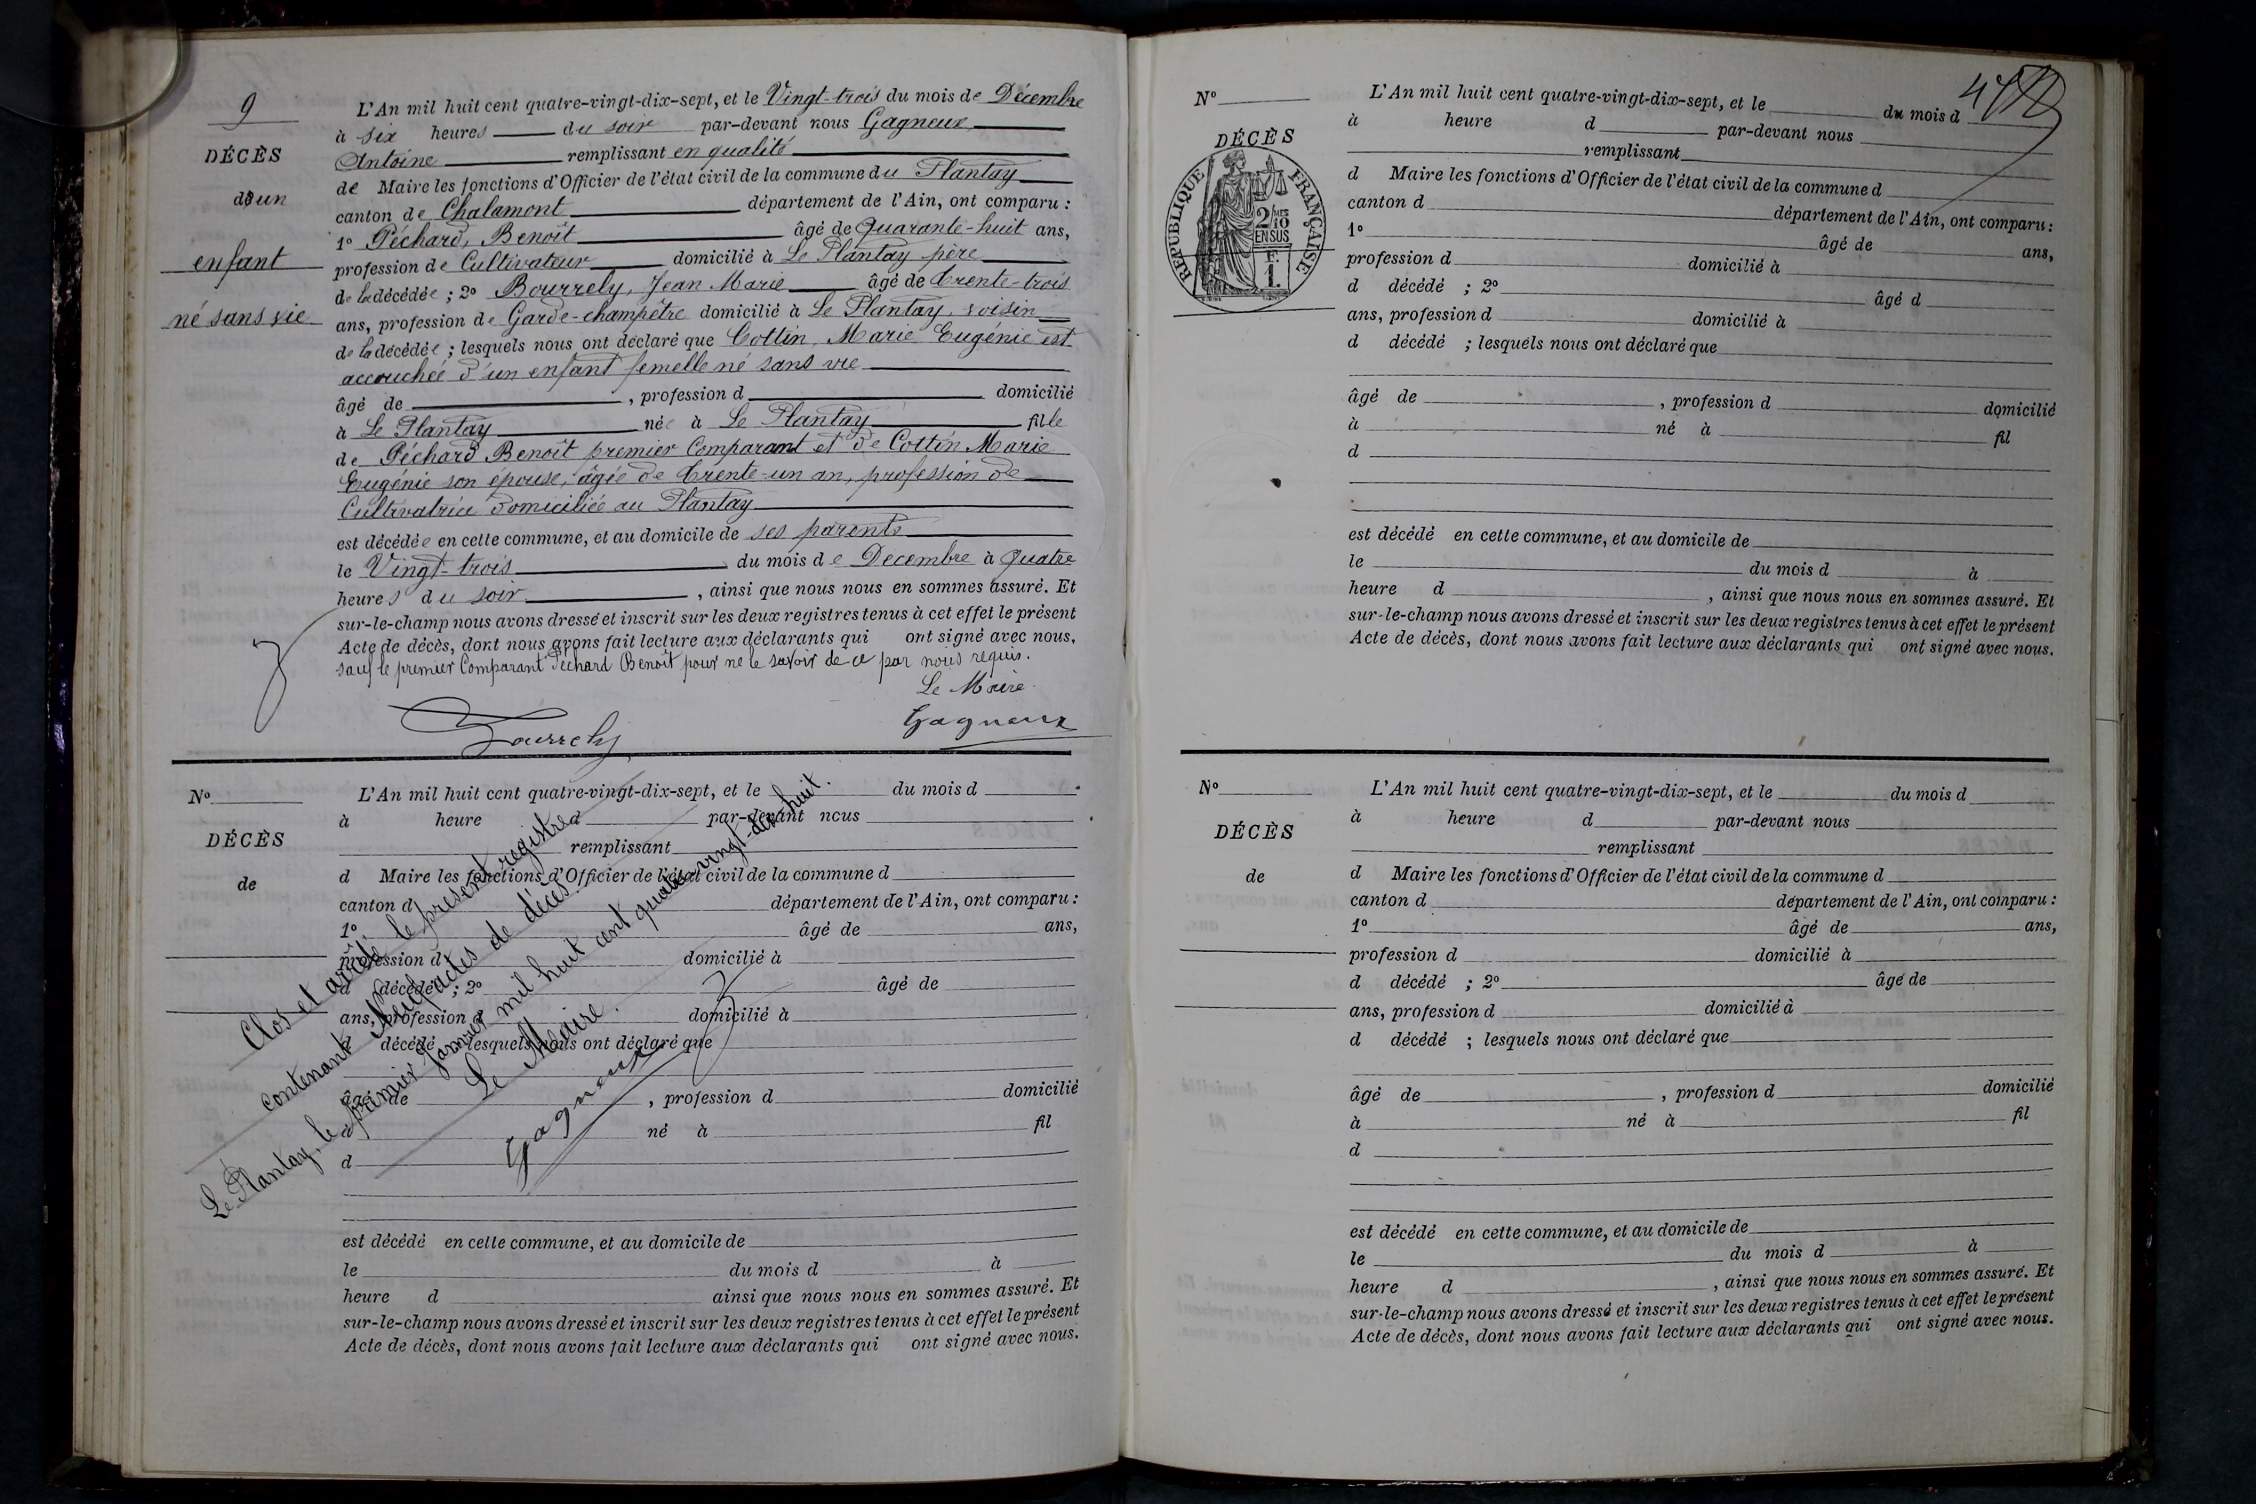 9
DÉCÈS
d'un
enfant
né sans vie
L'An mil huit cent quatre-vingt-dix-sept, et le Vingt-trois du mois de Décembre
à six heures du soir par-devant nous Gagneux
Antoine remplissant en qualité
de Maire les fonctions d'Officier de l'état civil de la commune du Plantay
canton de Chalamont département de l'Ain, ont comparu :
1º Péchard, Benoît âgé de Quarante-huit ans,
profession de Cultivateur domicilié à Le Plantay père
de la décédée ; 2º Bourrely, Jean Marie âgé de trente-trois
ans, profession de Garde-champêtre domicilié à Le Plantay, voisin
de la décédée ; lesquels nous ont déclaré que Cottin, Marie Eugénie est
accouchée d'un enfant femelle né sans vie
âgé de , profession d domicilié
à Le Plantay née à Le Plantay fille
de Péchard Benoît premier Comparant et de Cottin Marie
Eugénie son épouse, âgée de trente-un an, profession de
Cultivatrice domiciliée au Plantay
est décédée en cette commune, et au domicile de ses parents
le Vingt-trois du mois de Decembre à Quatre
heures du soir , ainsi que nous nous en sommes assuré. Et
sur-le-champ nous avons dressé et inscrit sur les deux registres tenus à cet effet le présent
Acte de décès, dont nous avons fait lecture aux déclarants qui ont signé avec nous,
sauf le premier Comparant Péchard Benoît pour ne le savoir de ce par nous requis.
Le Maire
Bourrely
Gagneux
Nº
DÉCÈS
de
L'An mil huit cent quatre-vingt-dix-sept, et le du mois d
à heure d par-devant nous
remplissant
d Maire les fonctions d'Officier de l'état civil de la commune d
canton d département de l'Ain, ont comparu :
1º âgé de ans,
profession d domicilié à
d décédé ; 2º âgé de
ans, profession d domicilié à
d décédé ; lesquels nous ont déclaré que
âgé de , profession d domicilié
à né à fil
d
est décédé en cette commune, et au domicile de
le du mois d à
heure d ainsi que nous nous en sommes assuré. Et
sur-le-champ nous avons dressé et inscrit sur les deux registres tenus à cet effet le présent
Acte de décès, dont nous avons fait lecture aux déclarants qui ont signé avec nous.
Clos et arrêté le présent registre
contenant Neuf actes de décès.
Le Plantay, le premier Janvier mil huit cent quatre vingt-dix huit.
Le Maire.
Gagneux
Nº
DÉCÈS
RÉPUBLIQUE FRANÇAISE
2/10
EN SUS
F.
1.
L'An mil huit cent quatre-vingt-dix-sept, et le du mois d
à heure d par-devant nous
remplissant
d Maire les fonctions d'Officier de l'état civil de la commune d
canton d département de l'Ain, ont comparu :
1º âgé de ans,
profession d domicilié à
d décédé ; 2º âgé d
ans, profession d domicilié à
d décédé ; lesquels nous ont déclaré que
âgé de , profession d domicilié
à né à fil
d
est décédé en cette commune, et au domicile de
le du mois d à
heure d , ainsi que nous nous en sommes assuré. Et
sur-le-champ nous avons dressé et inscrit sur les deux registres tenus à cet effet le présent
Acte de décès, dont nous avons fait lecture aux déclarants qui ont signé avec nous.
Nº
DÉCÈS
de
L'An mil huit cent quatre-vingt-dix-sept, et le du mois d
à heure d par-devant nous
remplissant
d Maire les fonctions d'Officier de l'état civil de la commune d
canton d département de l'Ain, ont comparu :
1º âgé de ans,
profession d domicilié à
d décédé ; 2º âgé de
ans, profession d domicilié à
d décédé ; lesquels nous ont déclaré que
âgé de , profession d domicilié
à né à fil
d
est décédé en cette commune, et au domicile de
le du mois d à
heure d , ainsi que nous nous en sommes assuré. Et
sur-le-champ nous avons dressé et inscrit sur les deux registres tenus à cet effet le présent
Acte de décès, dont nous avons fait lecture aux déclarants qui ont signé avec nous.